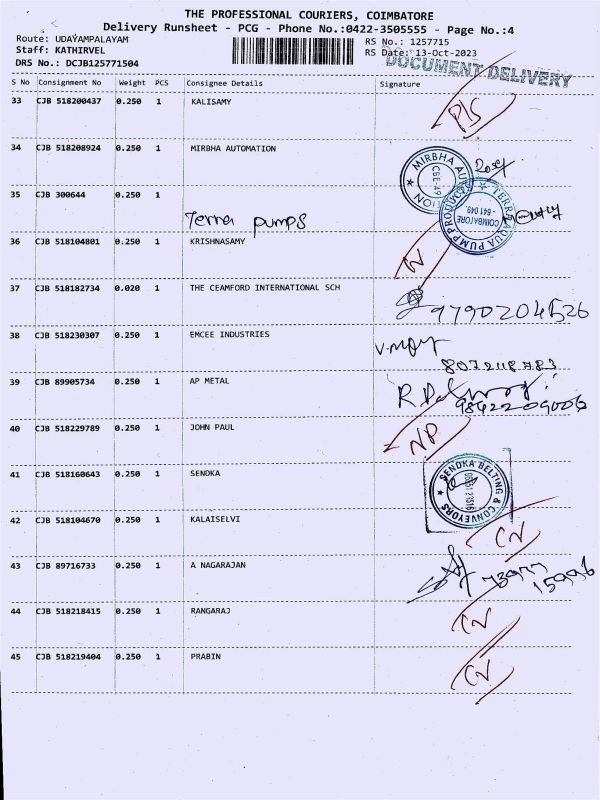 THE PROFESSIONAL COURIERS, COIMBATORE
Delivery Runsheet - PCG - Phone No.:0422-3505555 - Page No.:4
Route: UDAYAMPALAYAM
RS No.: 1257715
Staff: KATHIRVEL
RS Date: 13-Oct-2023
DRS No.: DCJB125771504
DOCUMENT DELIVERY
S No Consignment No Weight PCS Consignee Details Signature
33 CJB 518200437 0.250 1 KALISAMY P/S
34 CJB 518208924 0.250 1 MIRBHA AUTOMATION
MIRBHA AUTOMATION CBE-49
35 CJB 300644 0.250 1
Terra pumps
TERRA AQUA PUMP PRODUCTION COIMBATORE - 641 049.
36 CJB 518104801 0.250 1 KRISHNASAMY
37 CJB 518182734 0.020 1 THE CEAMFORD INTERNATIONAL SCH
9790204526
38 CJB 518230307 0.250 1 EMCEE INDUSTRIES
8072118783
39 CJB 89905734 0.250 1 AP METAL
40 CJB 518229789 0.250 1 JOHN PAUL NP
41 CJB 518160643 0.250 1 SENDKA
SENDKA BELTING & CONVEYORS
42 CJB 518104670 0.250 1 KALAISELVI CN
43 CJB 89716733 0.250 1 A NAGARAJAN
44 CJB 518218415 0.250 1 RANGARAJ CN
45 CJB 518219404 0.250 1 PRABIN CN